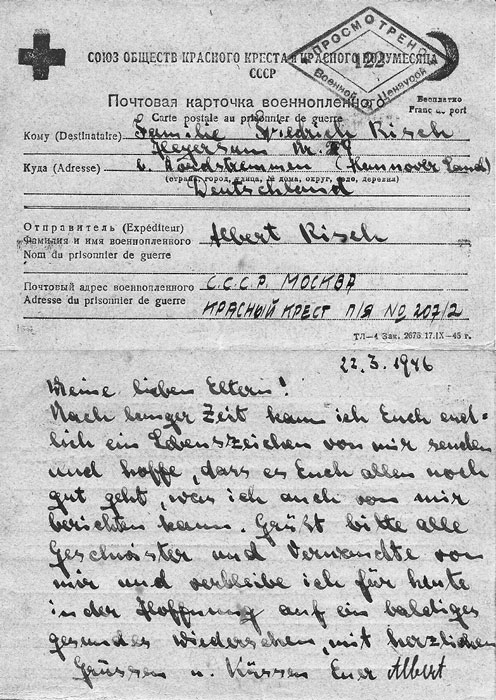 СОЮЗ ОБЩЕСТВ КРАСНОГО КРЕСТА и КРАСНОГО ПОЛУМЕСЯЦА
СССР
ПРОСМОТРЕНО
122
Военной Цензурой
Почтовая карточка военнопленного
Бесплатно
Carte postale au prisonnier de guerre
Franc de port
Кому (Destinataire) Familie Friedrich Risch
Heyersum Nr.
Куда (Adresse) b. Nordstemmen (Hannover Land)
(страна, город, улица, № дома, округ, село, деревня)
Deutschland
Отправитель (Expéditeur)
Фамилия и имя военнопленного Albert Risch
Nom du prisonnier de guerre
Почтовый адрес военнопленного С.С.С.Р. МОСКВА
Adresse du prisonnier de guerre КРАСНЫЙ КРЕСТ П/Я NO 207/2
ТЛ—4 Зак. 2676 17.IX—45 г.
22.3.1946
Meine lieben Eltern!
Nach langer Zeit kann ich Euch end-
lich ein Lebenszeichen von mir senden
und hoffe, dass es Euch allen noch
gut geht, was ich auch von mir
berichten kann. Grüßt bitte alle
Geschwister und Verwandte von
mir und verbleibe ich für heute
in der Hoffnung auf ein baldiges
gesundes Wiedersehen, mit herzlichen
Grüssen u. Küssen Euer Albert